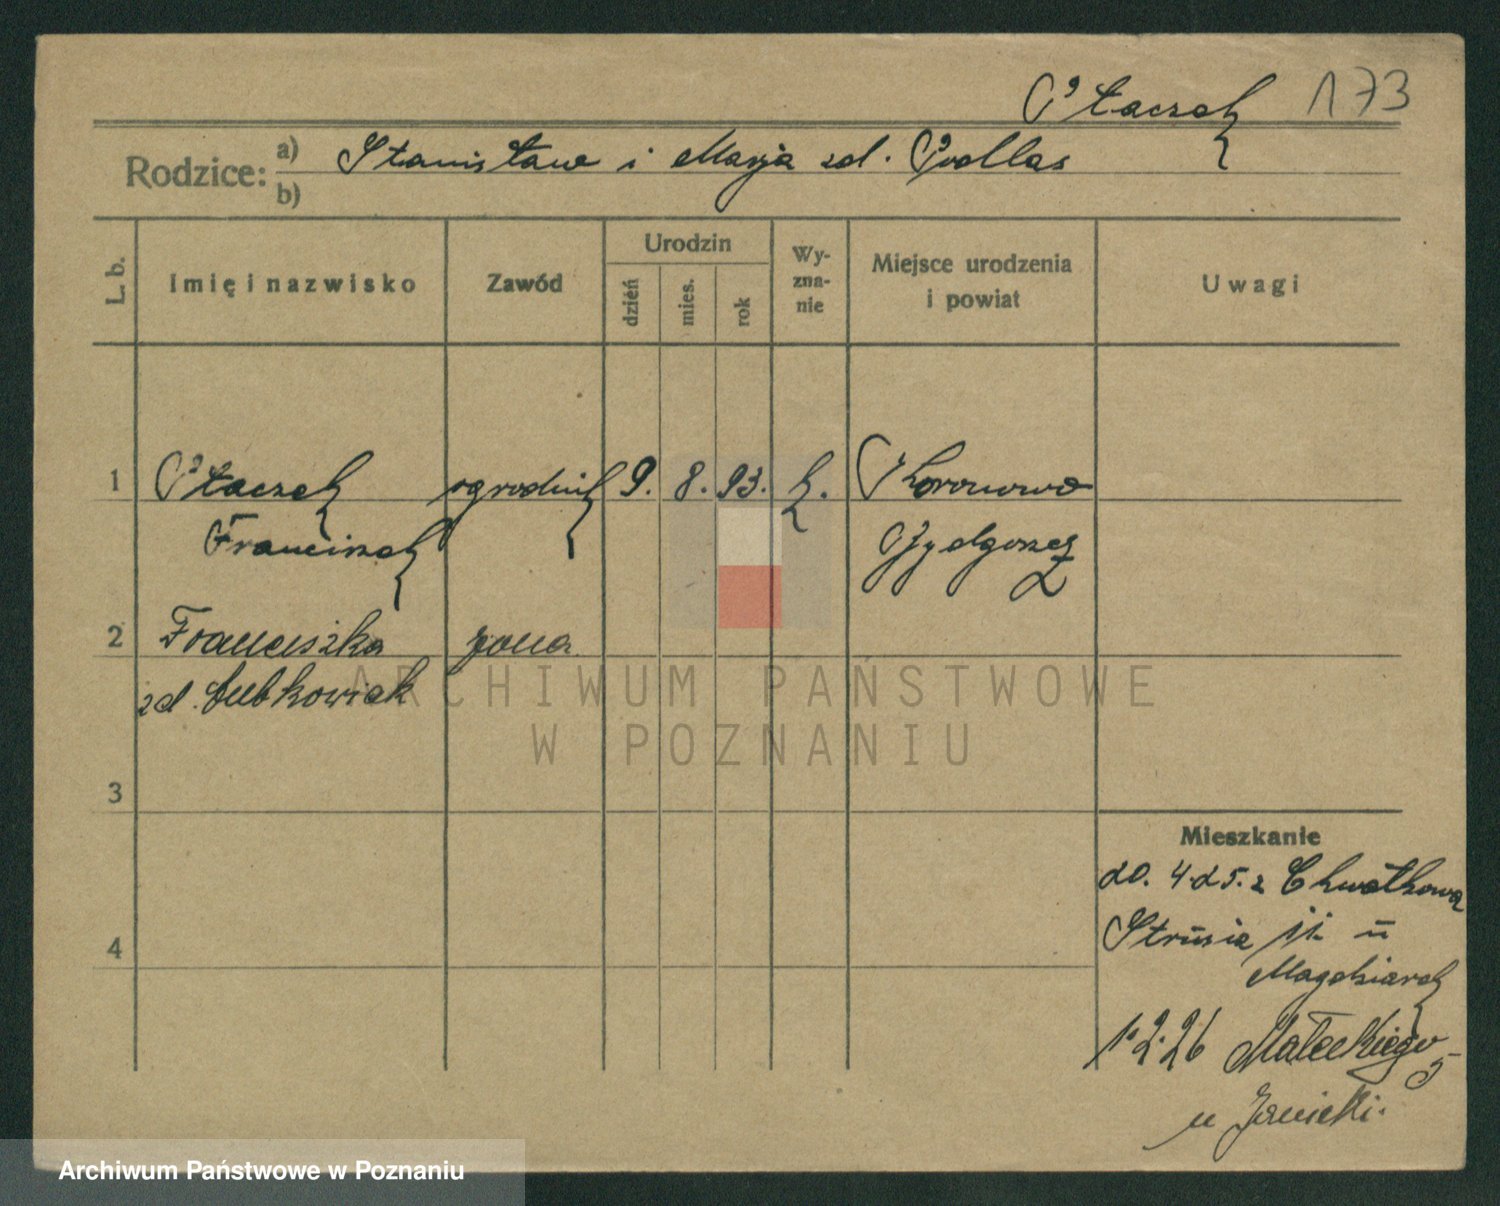 Ptaczek 173
Rodzice: a) Stanisław i Marja zd. Pollas
b)
L. b. Imię i nazwisko Zawód Urodzin dzień mies. rok Wyznanie Miejsce urodzenia i powiat Uwagi
1 Ptaczek ogrodnik 9. 8. 93. k. Koronowo
Franciszek Bydgoszcz
2 Franciszka żona
zd. Lubkowiak
ARCHIWUM PAŃSTWOWE
W POZNANIU
3
Mieszkanie
do. 4.25. z Chwałkowa
4 Strusia 11. u
Magdziarek
1.2.26 Małeckiego 5
u Janicki.
Archiwum Państwowe w Poznaniu